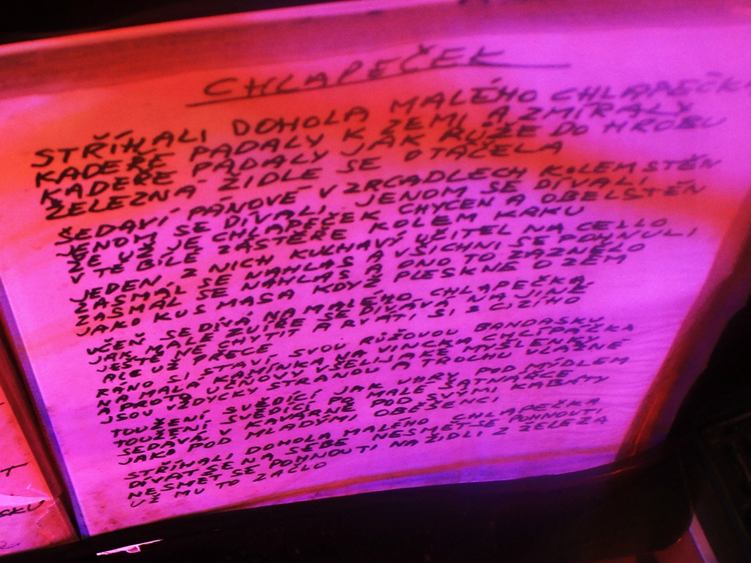 CHLAPEČEK
STŘÍHALI DOHOLA MALÉHO CHLAPEČKA
KADEŘE PADALY K ZEMI A ZMÍRALY
KADEŘE PADALY JAK RŮŽE DO HROBU
ŽELEZNÁ ŽIDLE SE OTÁČELA
ŠEDAVÍ PÁNOVÉ V ZRCADLECH KOLEM STĚN
JENOM SE DÍVALI JENOM SE DÍVALI
ŽE UŽ JE CHLAPEČEK CHYCEN A OBELSTĚN
V TÉ BÍLÉ ZÁSTĚŘE KOLEM KRKU
JEDEN Z NICH KUCHAVÝ UČITEL NA CELLO
ZASMÁL SE NAHLAS A VŠICHNI SE POHNULI
ZASMÁL SE NAHLAS A ONO TO ZAZNĚLO
JAKO KUS MASA KDYŽ PLESKNE O ZEM
UČEŇ SE DÍVÁ NA MALÉHO CHLAPEČKA
JAK MALÉ ZVÍŘE SE DÍVÁVÁ NA JINÉ
JEŠTĚ NE CHYTIT A RVÁTI SI Z CIZÍHO
ALE UŽ PŘECE
RÁNO SI STAVÍ SVOU RŮŽOVOU BANDASKU
NA MALÁ KAMÍNKA NA VINCKA CHLÍPÁČKA
A PROTO UČŇOVY VŠELIJAKÉ MYŠLENKY
JSOU VŽDYCKY STRANOU A TROCHU VLAŽNÉ
TOUŽENÍ SVĚDÍCÍ JAK UHRY POD MÝDLEM
TOUŽENÍ SVĚDÍCÍ PO MALÉ ŠATNÁŘCE
SEDÁVÁ V KAVÁRNĚ POD SVÝMI KABÁTY
JAKO POD MLADÝMI OBĚŠENCI
STŘÍHALI DOHOLA MALÉHO CHLAPEČKA
DÍVAT SE NA SEBE NESMĚT SE POHNOUTI
NESMĚT SE POHNOUTI NA ŽIDLI Z ŽELEZA
UŽ MU TO ZAČLO